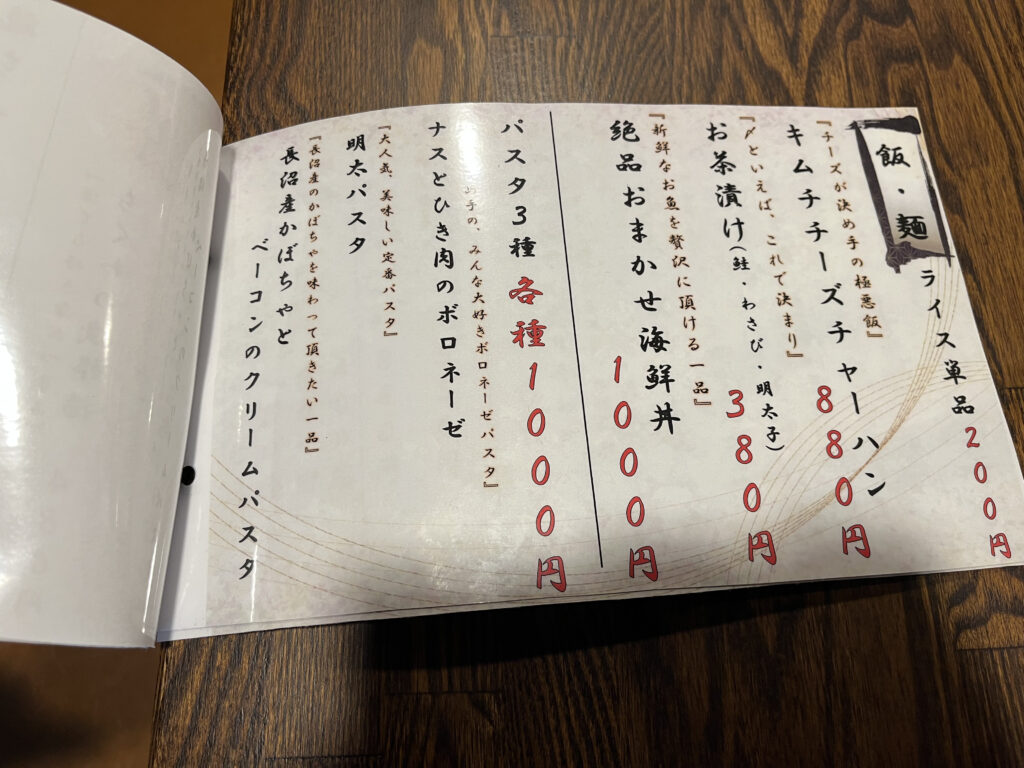 飯・麺
ライス単品200円
『チーズが決め手の極悪飯』
キムチチーズチャーハン 880円
『〆といえば、これで決まり』
お茶漬け(鮭・わさび・明太子) 380円
『新鮮なお魚を贅沢に頂ける一品』
絶品おまかせ海鮮丼 1000円
パスタ3種 各種1000円
め手の、みんな大好きボロネーゼパスタ』
ナスとひき肉のボロネーゼ
『大人気、美味しい定番パスタ』
明太パスタ
『長沼産のかぼちゃを味わって頂きたい一品』
長沼産かぼちゃと
ベーコンのクリームパスタ